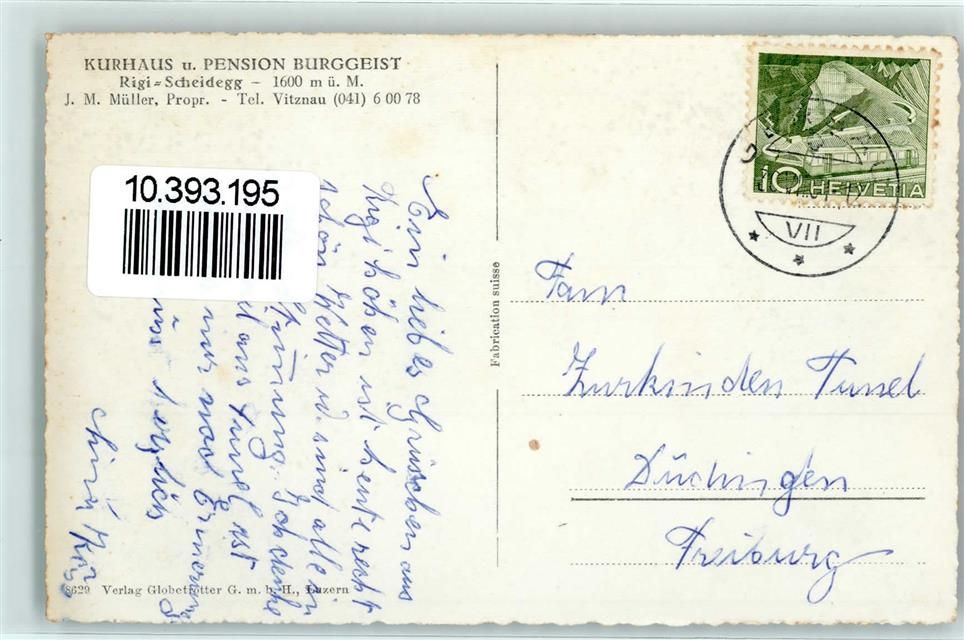 KURHAUS u. PENSION BURGGEIST
Rigi-Scheidegg – 1600 m ü. M.
J. M. Müller, Propr. - Tel. Vitznau (041) 6 00 78
10.393.195
10 HELVETIA
VII
Ein liebes Grüsschen aus
Rigi höhen ist heute recht
schön Wetter u. sind alle in
Stimmung. Ich denke
aus Tunel ist
nur noch
herzlich
Fabrication suisse
Fam
Zurkinden Tunel
Düdingen
Freiburg
8629 Verlag Globetrotter G. m. b. H., Luzern